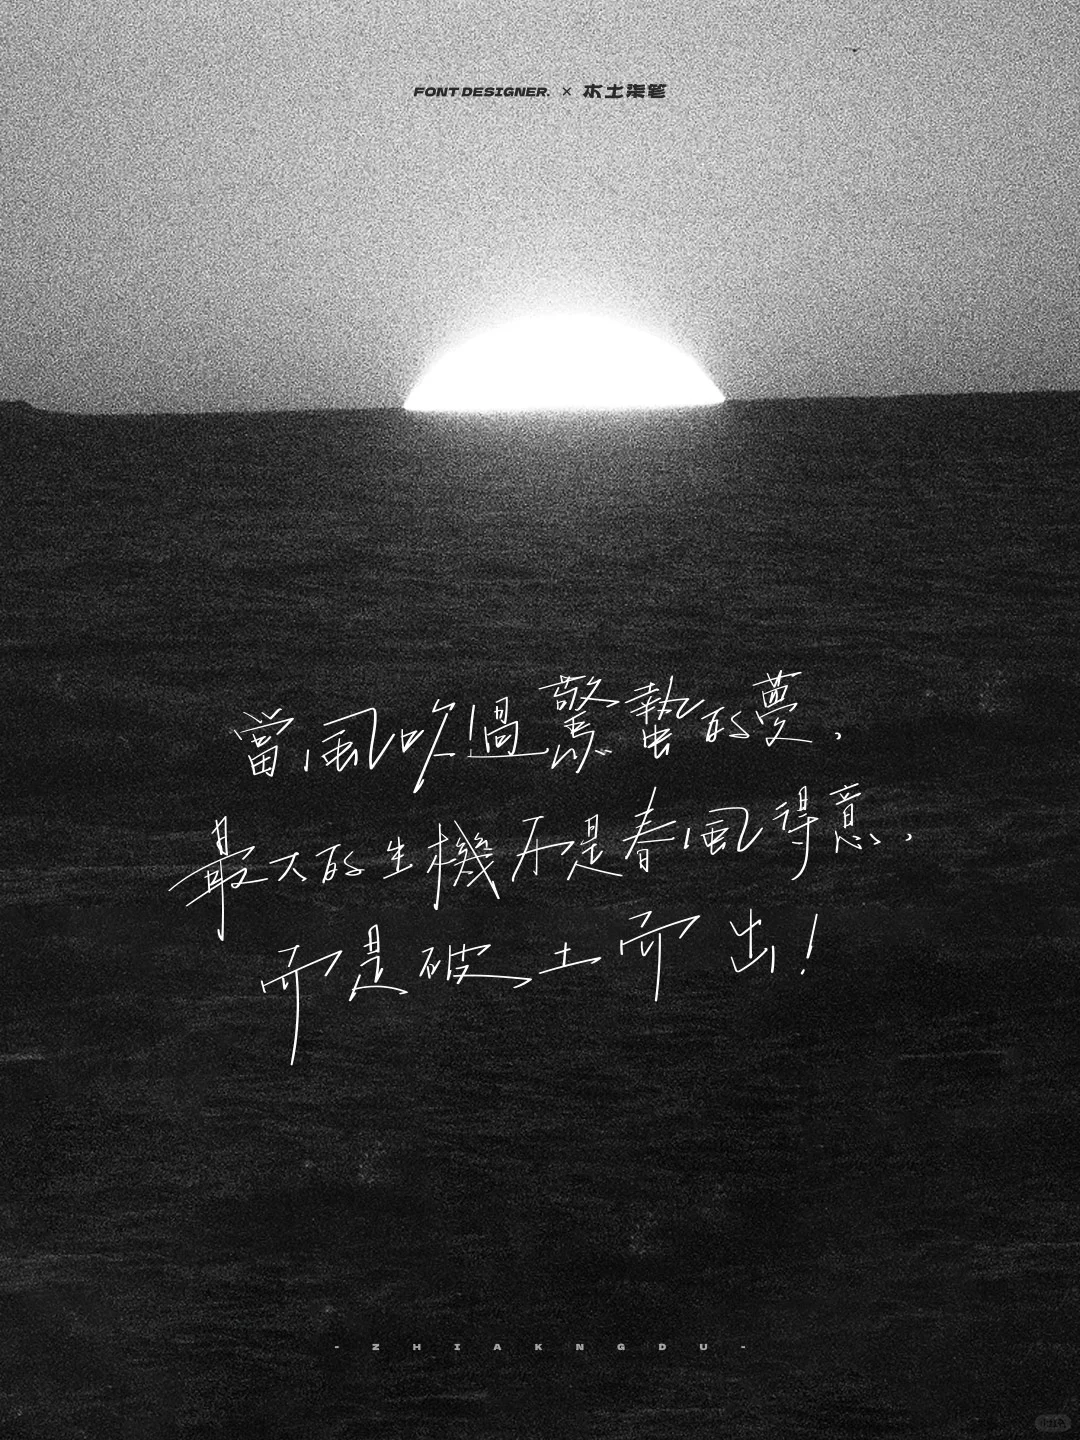 FONT DESIGNER. × 本土柒笔
當風吹過驚蟄的夢，
最大的生機不是春風得意，
而是破土而出！
- ZHIAKNGDU -
小红书